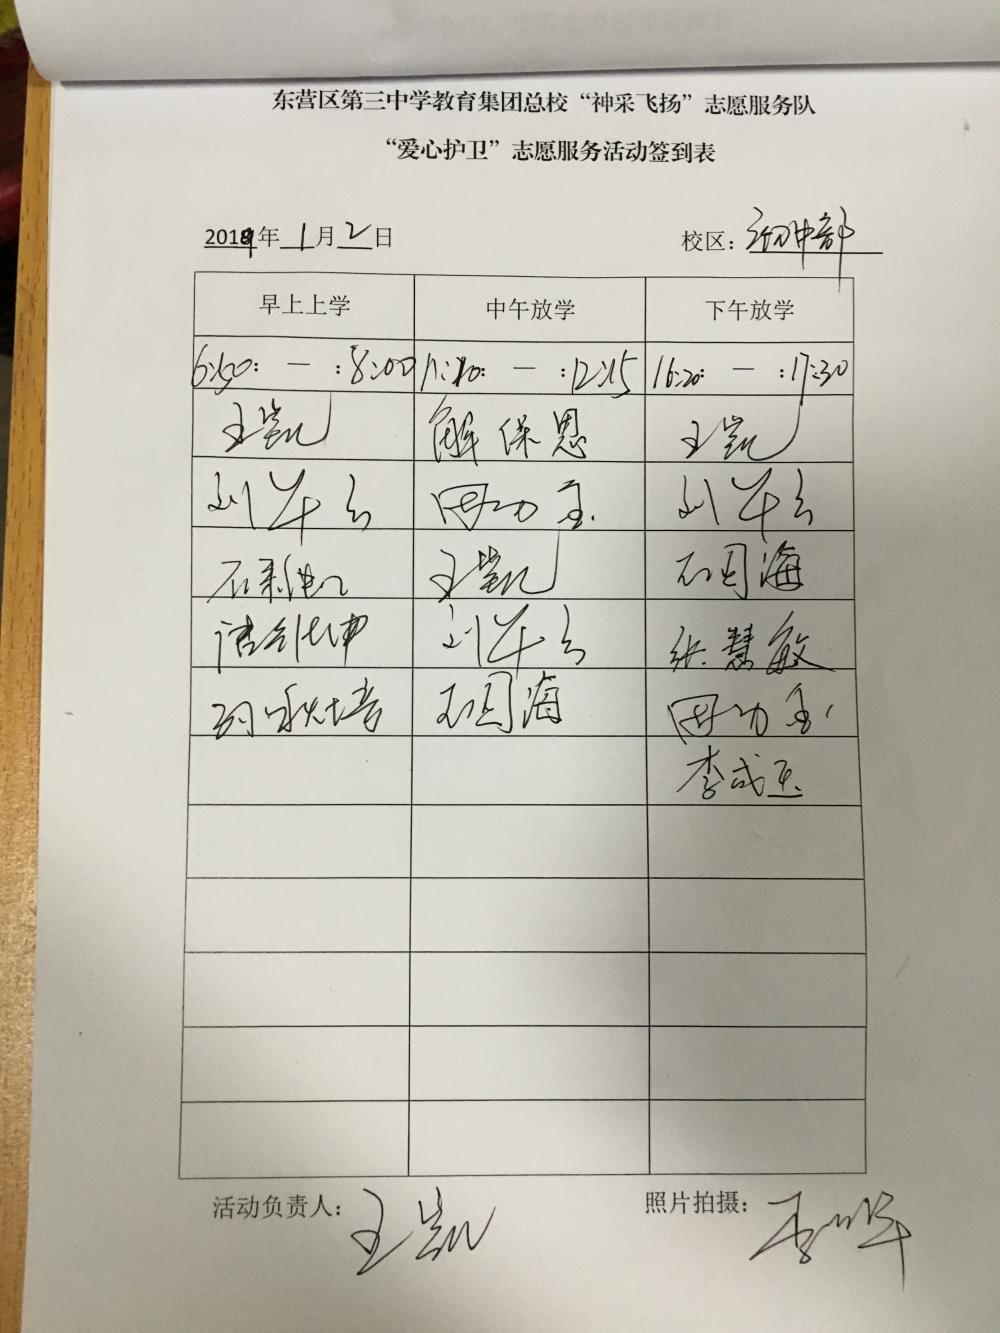 东营区第三中学教育集团总校“神采飞扬”志愿服务队
“爱心护卫”志愿服务活动签到表
2019年 1月2日 校区：初中部
早上上学 中午放学 下午放学
6:50: — :8:00 11:20: — :12:15 16:20: — :17:30
王凯 解保恩 王凯
刘军 田功 刘军
王凯 石国海
刘军 张慧敏
石国海 田功
李成玉
活动负责人：王凯 照片拍摄：李